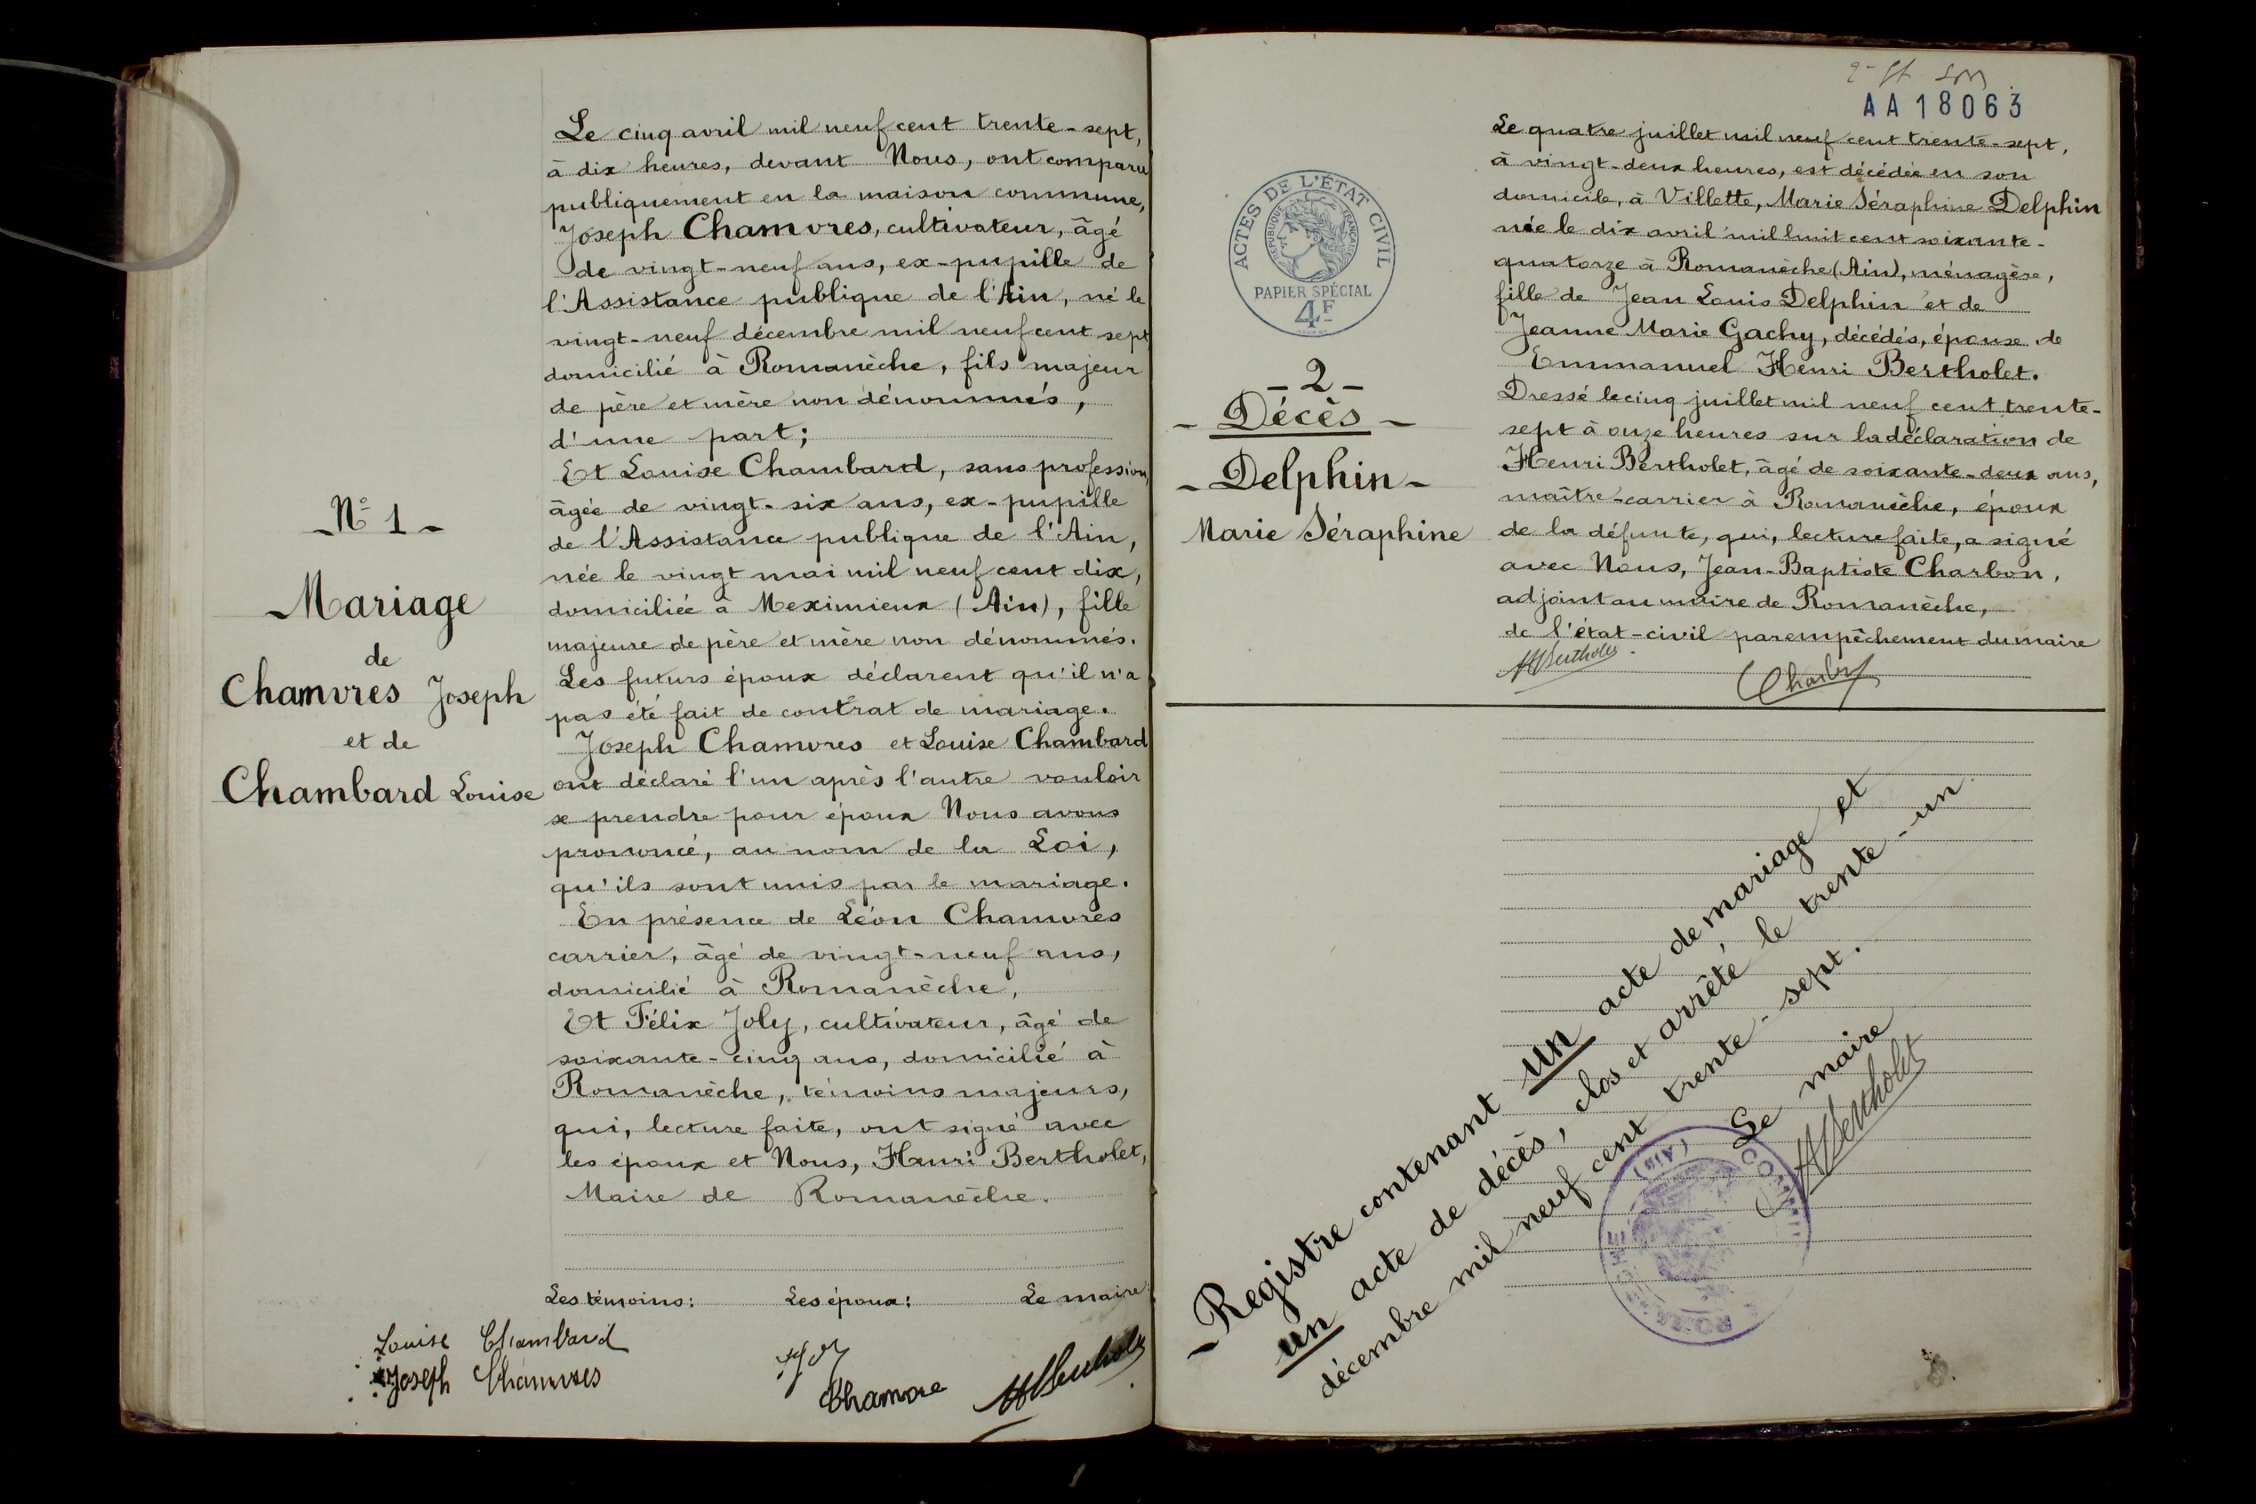 N° 1
Mariage
de
Chamvres Joseph
et de
Chambard Louise
Le cinq avril mil neuf cent trente-sept,
à dix heures, devant Nous, ont comparu
publiquement en la maison commune,
Joseph Chamvres, cultivateur, âgé
de vingt-neuf ans, ex-pupille de
l'Assistance publique de l'Ain, né le
vingt-neuf décembre mil neuf cent sept
domicilié à Romanèche, fils majeur
de père et mère non dénommés,
d'une part;
Et Louise Chambard, sans profession,
âgée de vingt-six ans, ex-pupille
de l'Assistance publique de l'Ain,
née le vingt mai mil neuf cent dix,
domiciliée à Meximieux (Ain), fille
majeure de père et mère non dénommés.
Les futurs époux déclarent qu'il n'a
pas été fait de contrat de mariage.
Joseph Chamvres et Louise Chambard
ont déclaré l'un après l'autre vouloir
se prendre pour époux Nous avons
prononcé, au nom de la Loi,
qu'ils sont unis par le mariage.
En présence de Léon Chamvres
carrier, âgé de vingt-neuf ans,
domicilié à Romanèche,
Et Félix Joly, cultivateur, âgé de
soixante-cinq ans, domicilié à
Romanèche, témoins majeurs,
qui, lecture faite, ont signé avec
les époux et Nous, Henri Bertholet,
Maire de Romanèche.
Les témoins: Les époux: Le maire:
Louise Chambard
Joseph Chamvres
Chamvre
HBertholet
AA18063
ACTES DE L'ÉTAT CIVIL
RÉPUBLIQUE FRANÇAISE
PAPIER SPÉCIAL
4F
- 2 -
- Décès -
- Delphin -
Marie Séraphine
Le quatre juillet mil neuf cent trente-sept,
à vingt-deux heures, est décédée en son
domicile, à Villette, Marie Séraphine Delphin
née le dix avril mil huit cent soixante-
quatorze à Romanèche (Ain), ménagère,
fille de Jean Louis Delphin et de
Jeanne Marie Gachy, décédés, épouse de
Emmanuel Henri Bertholet.
Dressé le cinq juillet mil neuf cent trente-
sept à onze heures sur la déclaration de
Henri Bertholet, âgé de soixante-deux ans,
maître-carrier à Romanèche, époux
de la défunte, qui, lecture faite, a signé
avec Nous, Jean-Baptiste Charbon,
adjoint au maire de Romanèche,
de l'état-civil par empêchement du maire
HBertholet
Charbon
- Registre contenant un acte de mariage et
un acte de décès, clos et arrêté le trente-un
décembre mil neuf cent trente-sept.
Le maire
HBertholet
(Ain)